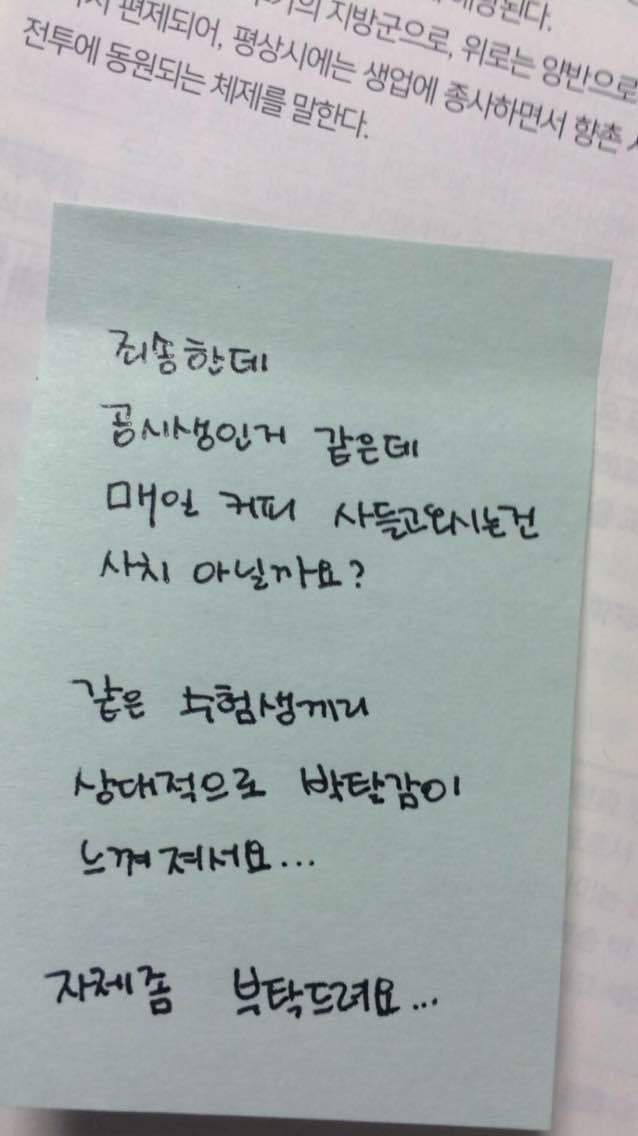 지방군으로, 위로는 양반으로
편제되어, 평상시에는 생업에 종사하면서 향촌
전투에 동원되는 체제를 말한다.
죄송한데
공시생인거 같은데
매일 커피 사들고와시는건
사치 아닐까요?
같은 수험생끼리
상대적으로 박탈감이
느껴져서요...
자제좀 부탁드려요...